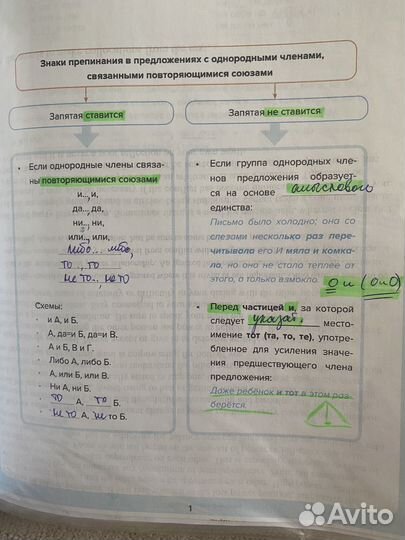 Знаки препинания в предложениях с однородными членами,
связанными повторяющимися союзами
Запятая ставится
Запятая не ставится
• Если однородные члены связа-
ны повторяющимися союзами
и.., и,
да.., да,
ни.., ни,
или.., или,
либо... либо,
то.., то
не то.. не то
Схемы:
• и А, и Б.
• А, да=и Б, да=и В.
• А и Б, В и Г.
• Либо А, либо Б.
• А, или Б, или В.
• Ни А, ни Б.
• то А, то Б.
• не то А, не то Б.
• Если группа однородных чле-
нов предложения образует-
ся на основе смыслового
единства:
Письмо было холодно; она со
слезами несколько раз пере-
читывала его И мяла и комка-
ла, но оно не стало теплее от
этого, а только взмокло.
О и (О и О)
• Перед частицей и, за которой
следует указат. место-
имение тот (та, то, те), употре-
бленное для усиления значе-
ния предшествующего члена
предложения:
Даже ребёнок и тот в этом раз-
берётся.
!
1
Avito